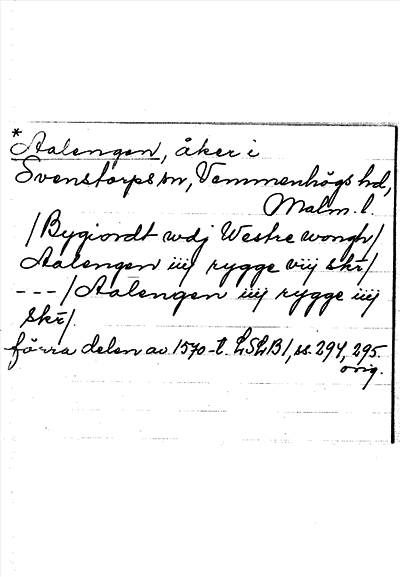 *
Aalengen, åker i
Svenstorps sn, Vemmenhögs hd,
Malm. l.
/Bygiordt wdj Westre wongh/
Aalengen iiij rygge viij skr/
---/Aalengen iiij rygge iiij
skr/.
förra delen av 1570-t. LSLB1, ss. 294, 295.
orig.